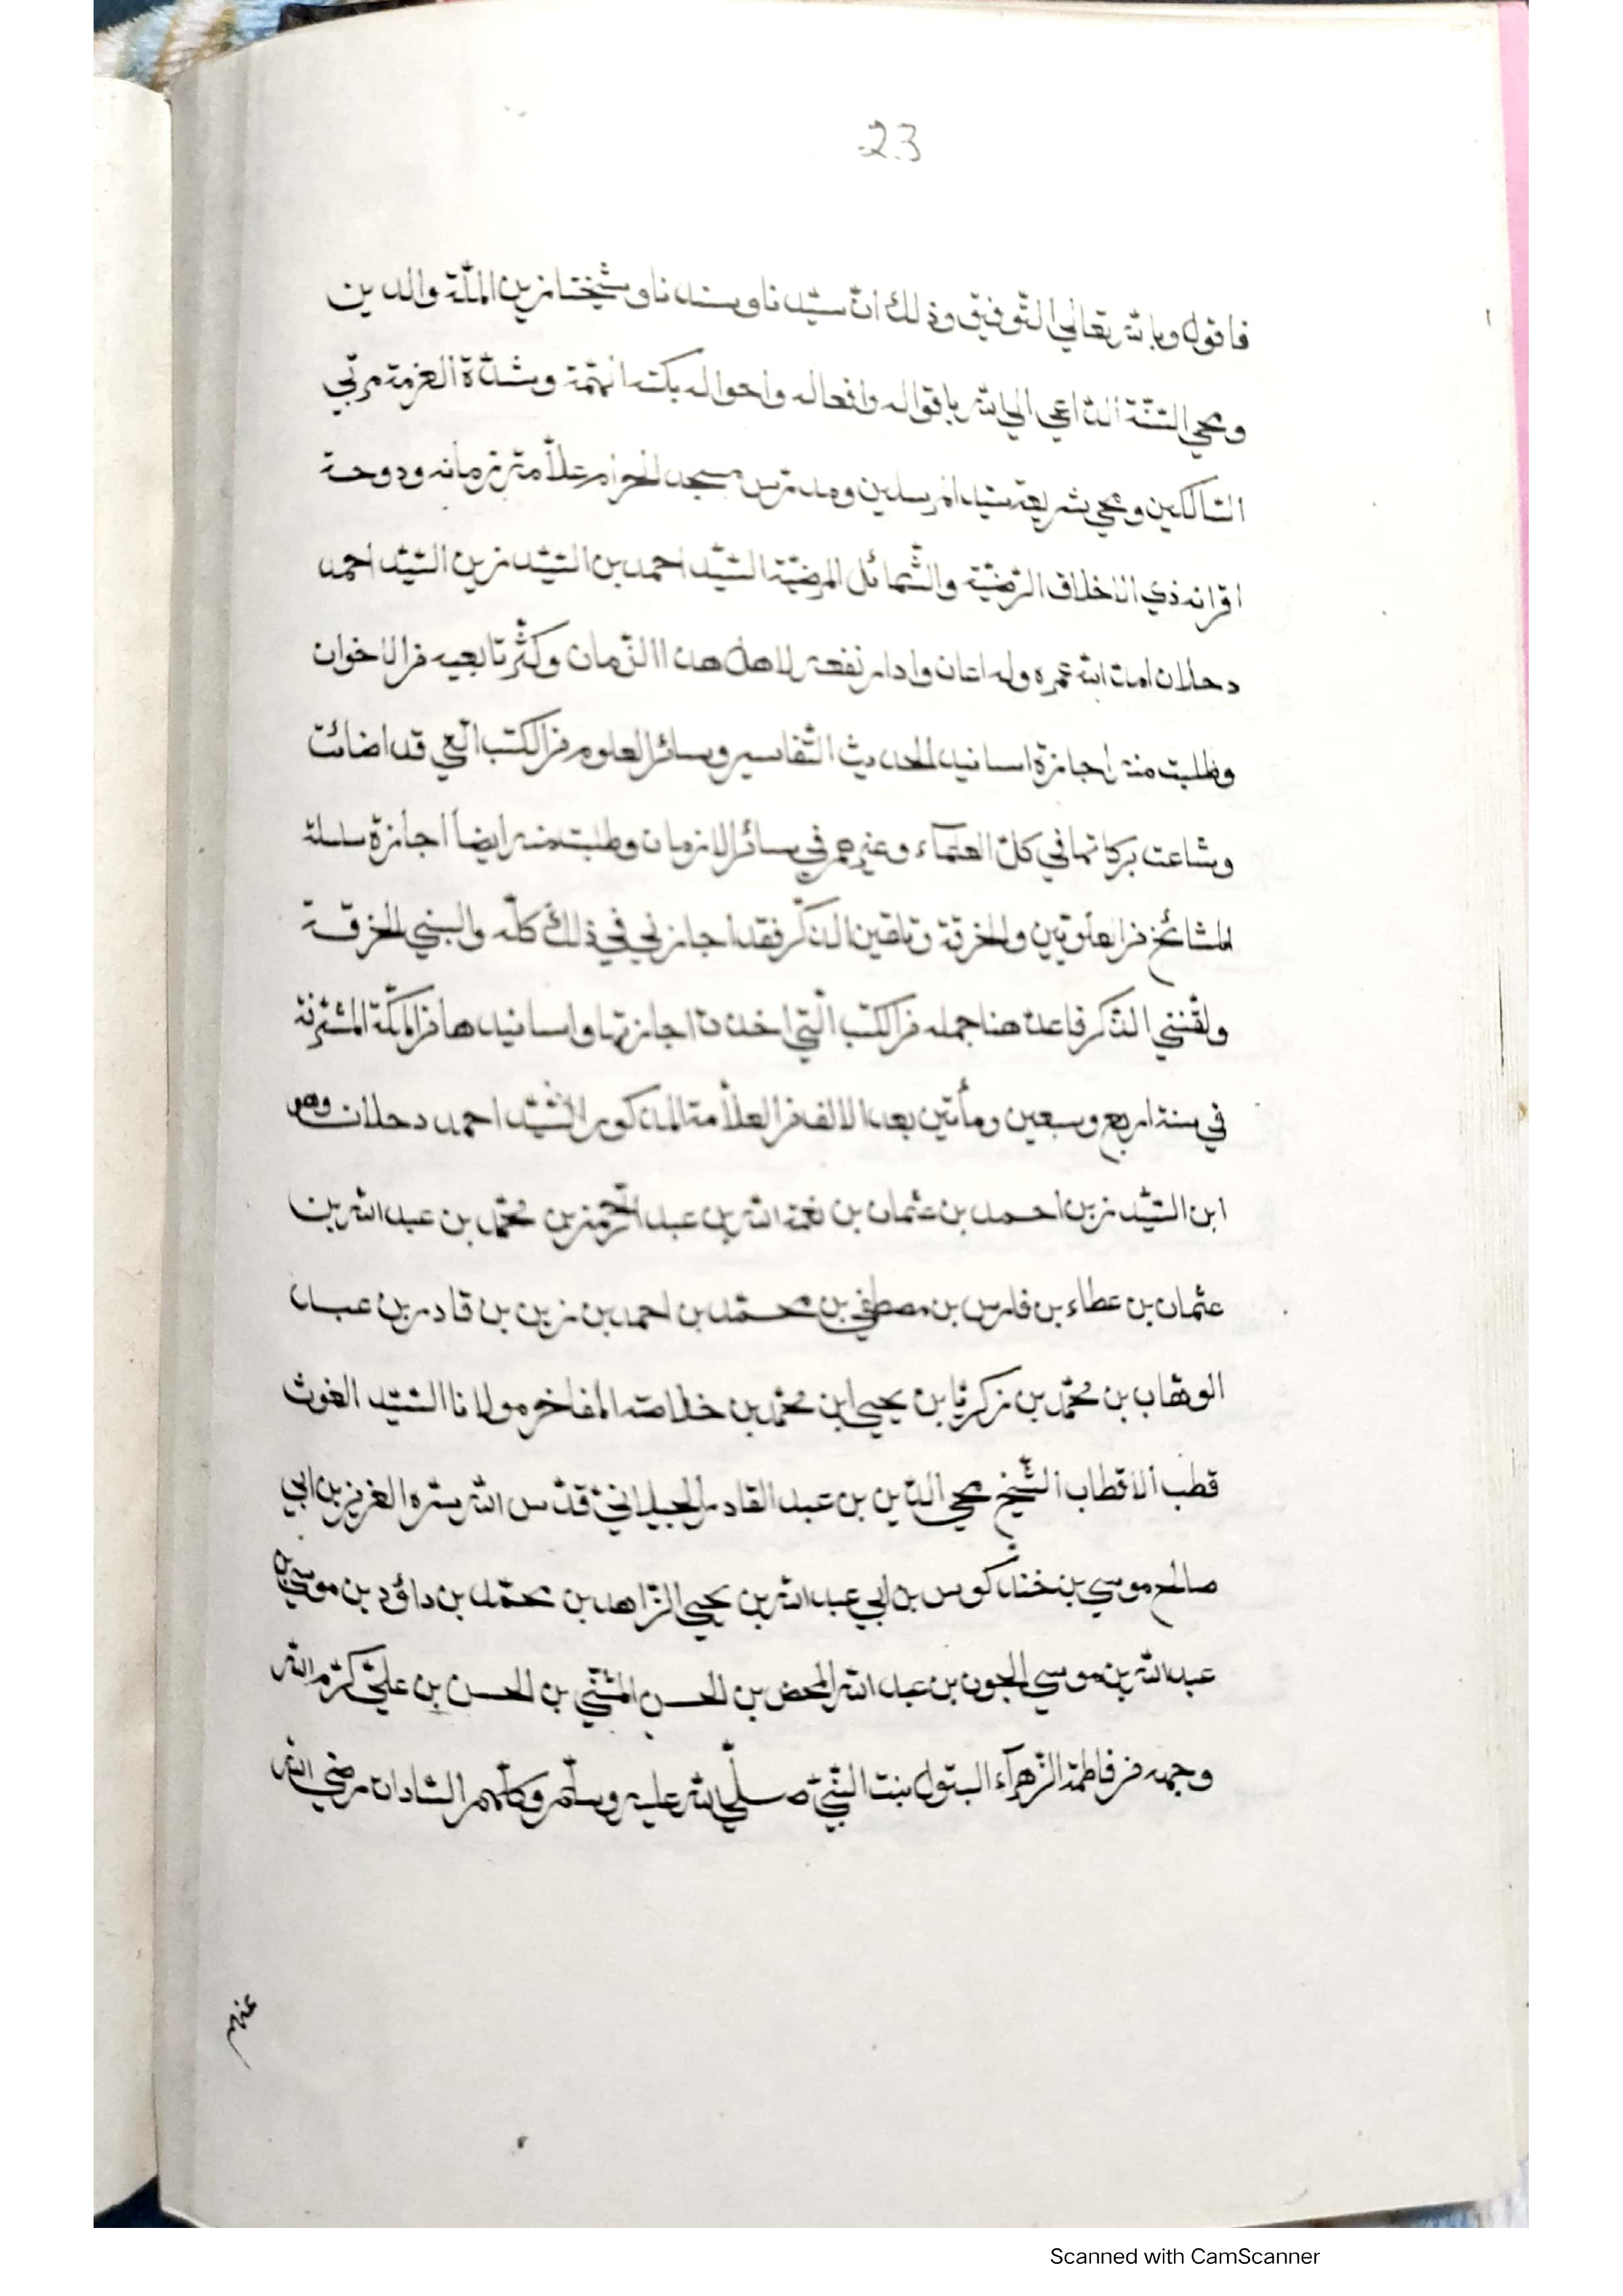 23
فاقول وبالله تعالى التّوفيق وذلك انّ سيّدنا وسندنا وشيخنا زين الملّة والدين
ومحي السّنّة الدّاعي الي الله باقواله وافعاله واحواله وشدّة العزمة مربّي
السّالكين ومحي شريعة سيّد المرسلين ومدرّس مسجد الحرام علّامة زمانه ودوحة
اقرانه ذي الاخلاق الرّضيّة والشّمائل المرضيّة السّيّد احمد بن السّيّد زين السّيّد احمد
دحلان امدّ الله عمره وله اعان وادام نفعه لاهل هذا الزّمان وكثّر تابعيه من الاخوان
وطلبت منه اجازة اسانيد الحديث التّفاسير وسائر العلوم من الكتب الّتي قد اضائت
وشاعت بركاتها في كلّ العلماء وغيرهم في سائر الازمان وطلبت منه ايضا اجازة سلسلة
المشائخ من العلوّيين والخرقة وتلقين الذّكر فقد اجازني في ذلك كلّه والبسني الخرقة
ولقّنني الذّكر فاعدّ هنا جمله من الكتب الّتي اخذت اجازتها واسانيدها من المكّة المشرّفة
في سنة اربع وسبعين ومأتين بعد الالف من العلاّمة المذكور السّيّد احمد دحلان وهو
ابن السّيّد زين احمد بن عثمان بن نعمة الله بن عبد الرّحمن بن محمّد بن عبد الله بن
عثمان بن عطاء بن فارس بن مصطفي بن محمّد بن احمد بن زين بن قادر بن عبد
الوهّاب بن محمّد بن زكريّا بن يحيي ابن محمّد بن خلاصة المفاخر مولانا السّيّد الغوث
قطب الاقطاب الشّيخ محي الدّين بن عبد القادر الجيلانيّ قدّس الله سرّه العزيز بن ابي
صالح موسي بن خندكوس بن ابي عبد الله بن يحيي الزّاهد بن محمّد بن داؤد بن موسي بن
عبد الله بن موسي الجون بن عبد الله المحض بن الحسن المثنّي بن الحسن بن عليّ كرّم الله
وجهه من فاطمة الزّهرآء البتول بنت النّبيّ صلّي الله عليه وسلّم وكلّهم السّادات رضي الله
Scanned with CamScanner